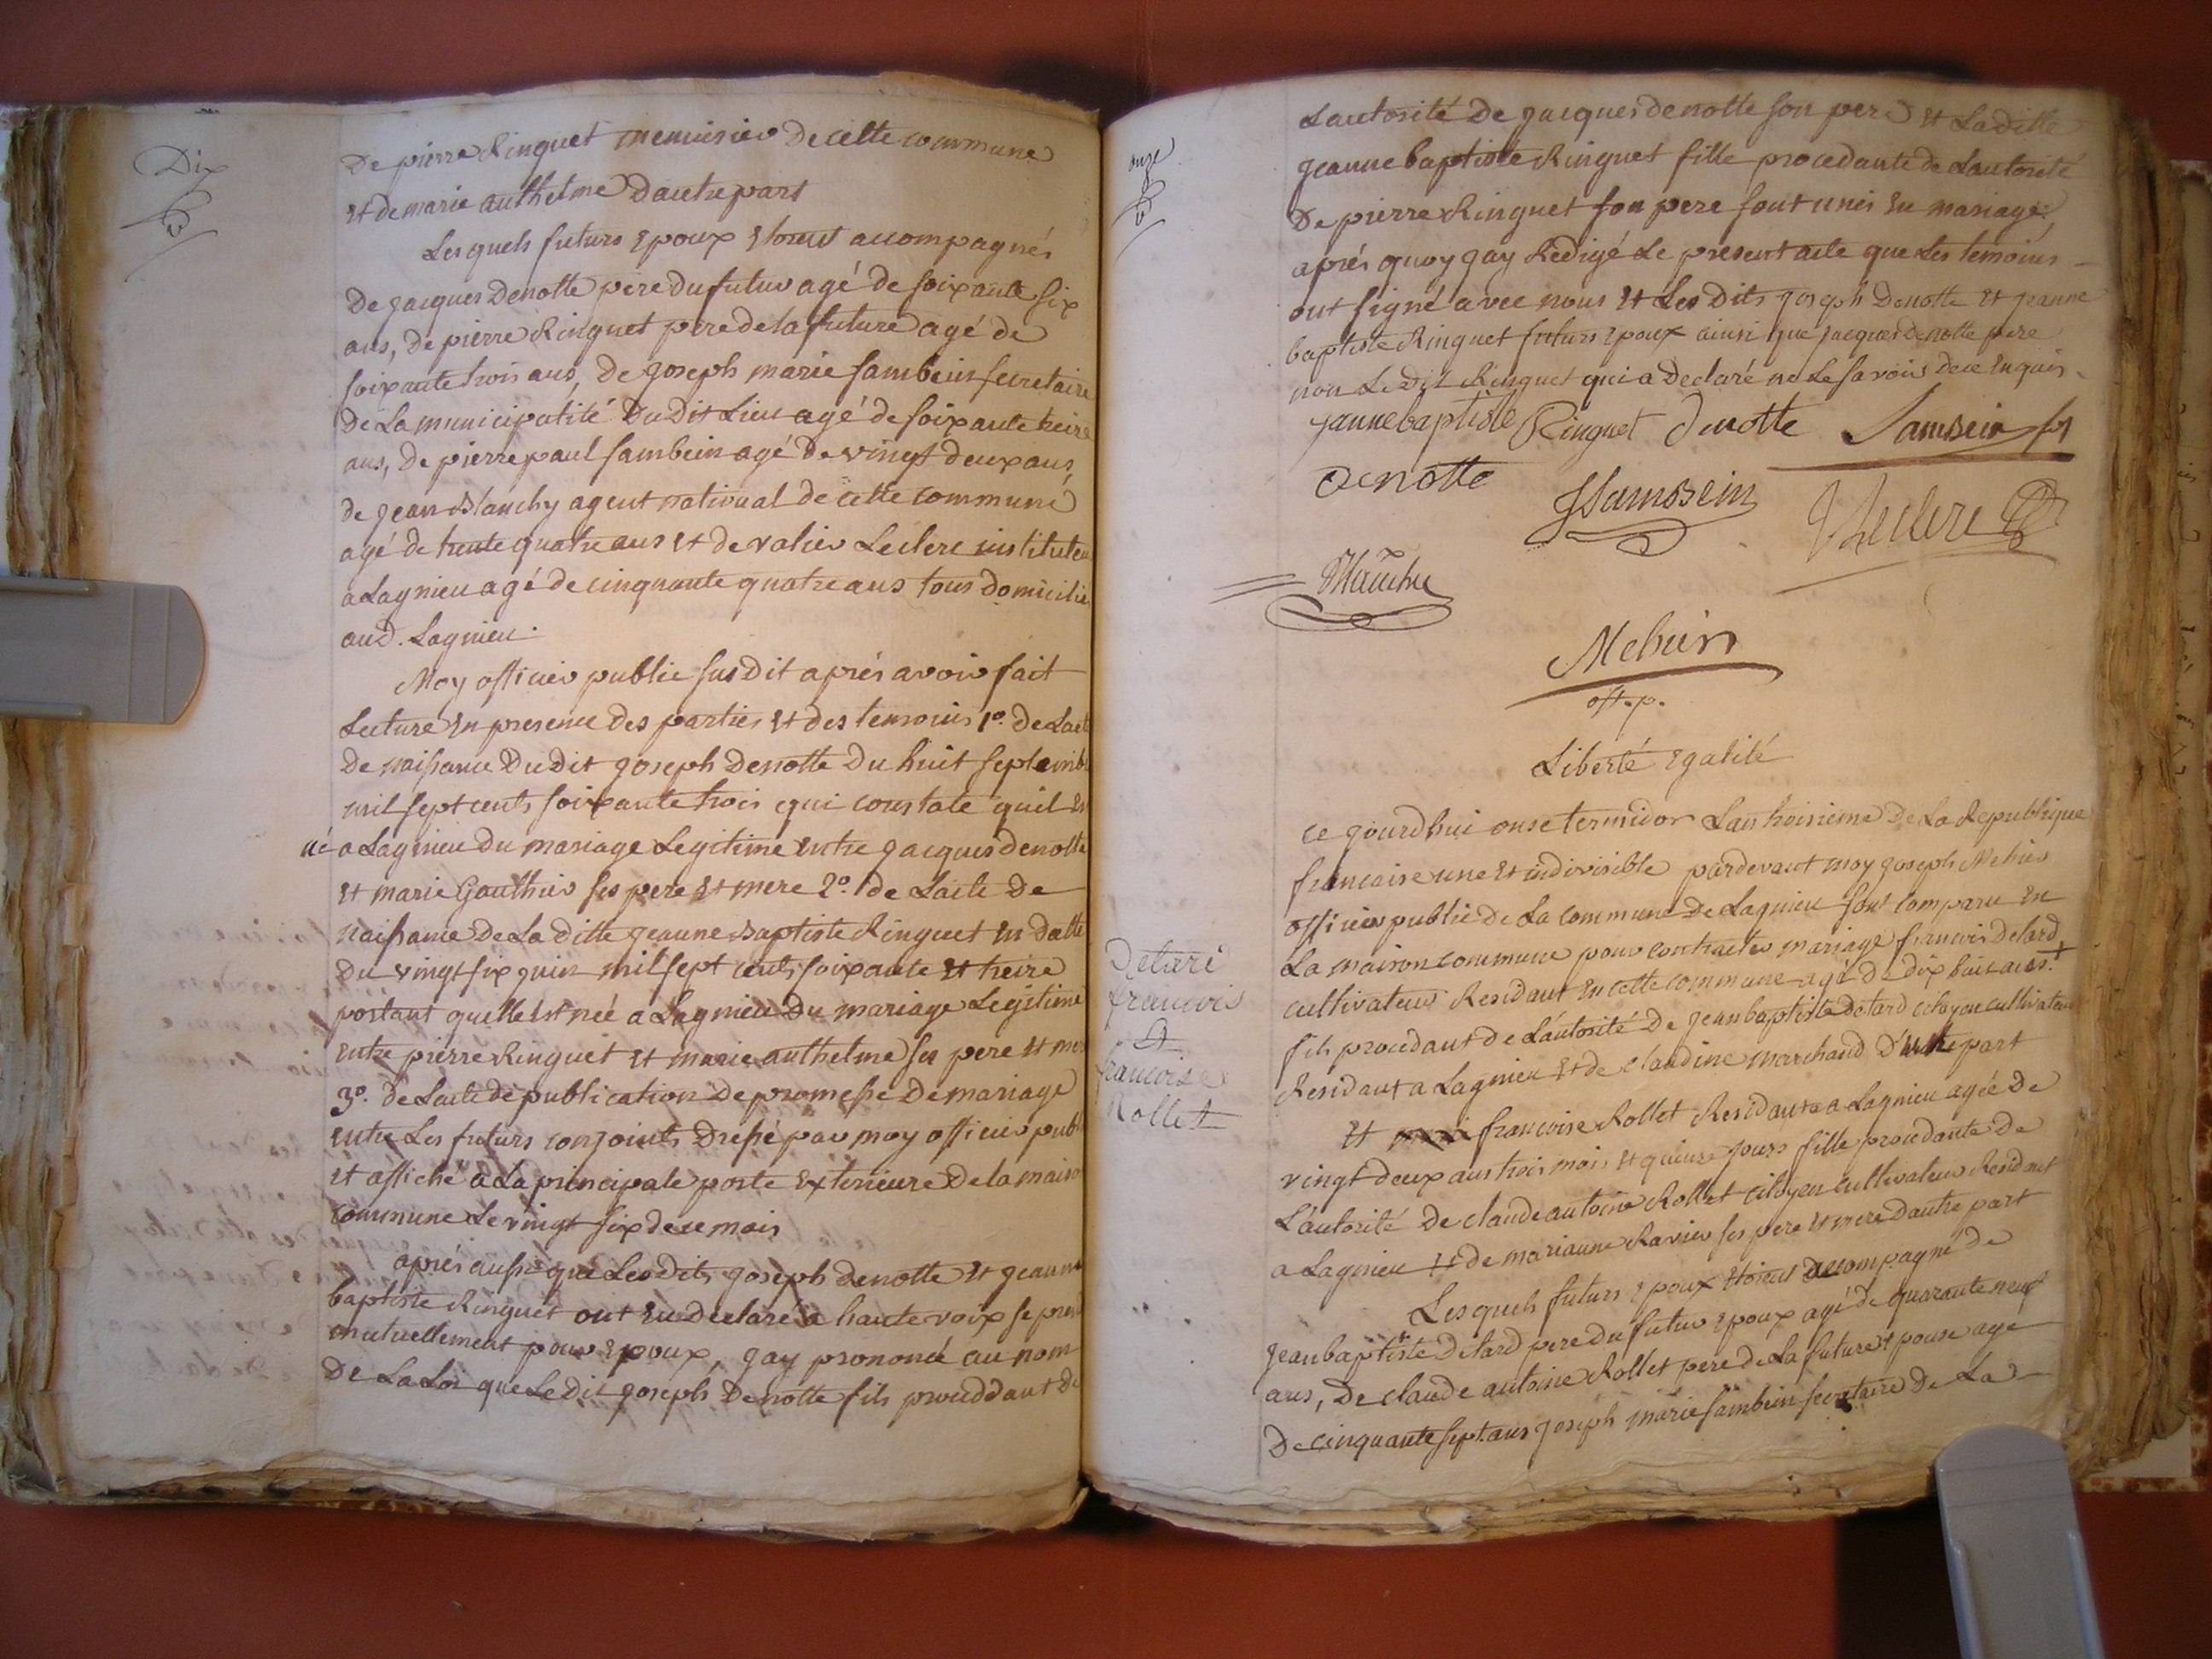 Dix
De pierre Ringuet menuisier de cette commune
Et de marie anthelme D'autre part
Lesquels futurs Epoux Etoient accompagnés
De Jacques Denotte pere du futur agé de soixante six
ans, de pierre Ringuet pere de la future agé de
soixante trois ans, De Joseph marie Sambein secretaire
De La municipalité Du Dit Lieu agé de soixante treize
ans, De pierre paul Sambein agé De vingt deux ans
de Jean Blanchy agent national de cette commune
agé de trente quatre ans Et de valier Leclerc instituteu
a Lagnieu agé de cinquante quatre ans tous Domicilié
aud. Lagnieu.
Moy officier public susdit aprés avoir fait
Lecture En presence Des parties Et des temoins 1º. De Lact
De naissance Du Dit Joseph Denotte Du huit septemb
mil sept cents soixante trois qui constate quil Es
né a Lagnieu Du mariage Legitime Entre Jacques Denotte
Et marie Gauthier ses pere Et mere 2º. de Lacte De
Naissance De La Ditte Jeanne Baptiste Ringuet En Datte
Du vingt six juin mil sept cents soixante Et treize
portant quelle Est née a Lagnieu Du mariage Legitime
Entre pierre Ringuet Et marie anthelme ses pere Et mer
3º. de Lacte de publication De promesse De mariage
Entre Les futurs conjoints Dressé par moy officier publ
Et affiché a La principale porte Exterieure De la maiso
commune Le vingt six de ce mois
aprés aussi que Les Dits Joseph Denotte Et Jeanne
baptiste Ringuet ont Eu Declaré a haute voix se pren
mutuellement pour Epoux, Jay prononcé au nom
De La Loi que Le Dit Joseph Denotte fils procedant de
onze
L'autorité De Jacques Denotte son pere Et La ditte
Jeanne baptiste Ringuet fille procedante de L'autorité
De pierre Ringuet son pere sont unis En mariage.
aprés quoy Jay Redigé Le present acte que Les temoins
ont signé avec nous Et Les Dits Joseph Denotte Et Jeanne
baptiste Ringuet futurs Epoux ainsi que Jacques Denotte pere
non Le Dit Ringuet qui a Declaré ne Le savoir De ce Enquis.
Jannebaptiste Ringuet denotte Sambein
denotte
JSambein
Vleclerc
Blanchy
Mehier
off. p.
Liberté Egalité
Ce Jourdhui onse termidor Lan troisieme De La Republique
francaise une Et indivisible pardevant moy Joseph Mehier
officier public De La Commune De Lagnieu sont comparu En
La maison commune pour contracter mariage francois detard
cultivateur Residant En cette commune agé De dix huit ans
fils procedant de L'autorité De Jean baptiste Detard citoyen cultivateur
Residant a Lagnieu Et de claudine marchand D'une part
Et francoise Rollet Residante a Lagnieu agée De
vingt deux ans trois mois Et quinze jours fille procedante De
L'autorité De claude antoine Rollet citoyen cultivateur Residant
a Lagnieu Et de marianne Ravier ses pere Et mere D'autre part
Lesquels futurs Epoux Etoient accompagné de
Jean baptiste Detard pere Du futur Epoux agé de quarante neuf
ans, De claude antoine Rollet pere De La future Epouse age
De cinquante sept ans Joseph marie Sambein secretaire De La
francois
Et
francoise
Rollet